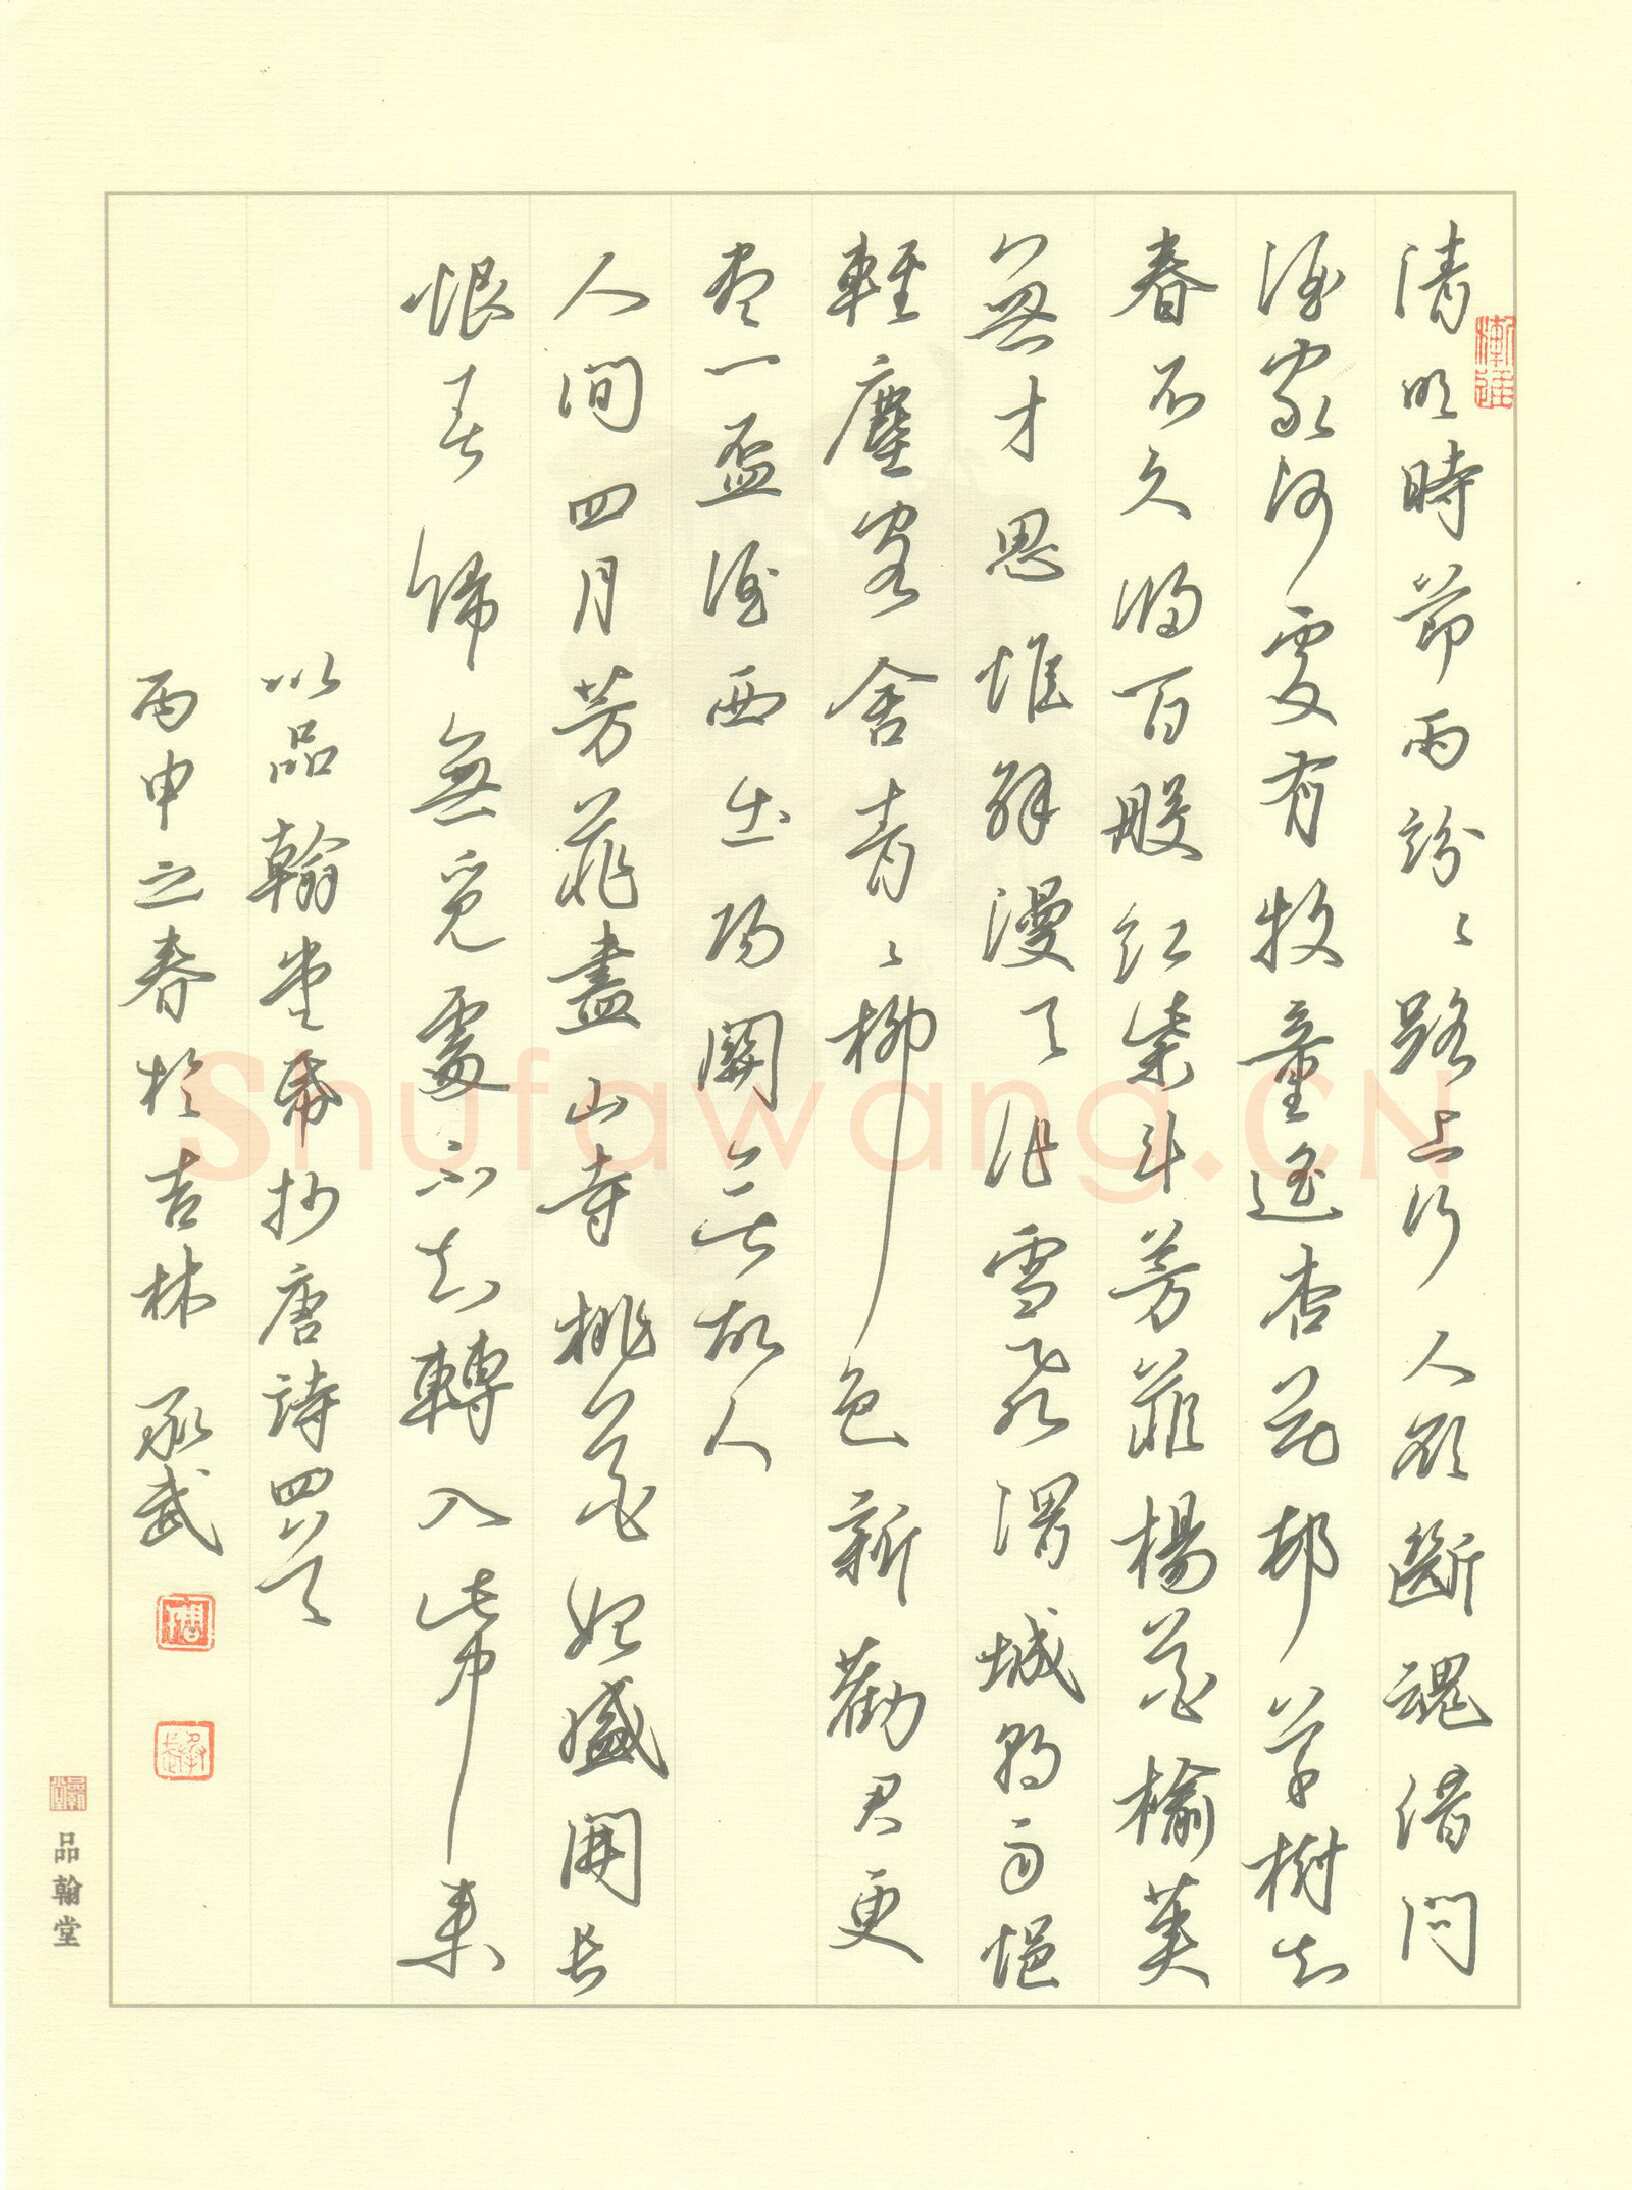 清明時節雨紛〻路上行人欲斷魂借問
酒家何處有牧童遥杏花邨草樹知
春不久歸百般紅紫斗芳菲楊花榆莢
無才思惟解漫天作雪飛渭城朝雨浥
輕塵客舍青〻柳色新勸君更
尽一盃酒西出陽關無故人
人間四月芳菲盡山寺桃花始盛開長
恨春歸無覓處不知轉入此中來
以品翰堂帋抄唐詩四首
丙申之春於吉林 承武
品翰堂
漸進
Shufawang.CN